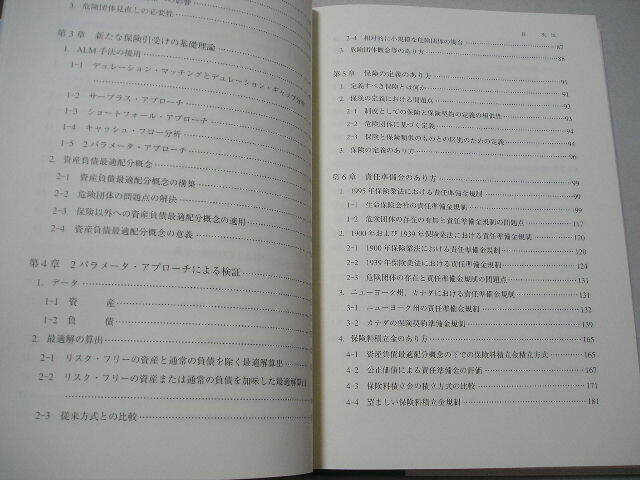 3. 危険団体見直しの必要性
第3章 新たな保険引受けの基礎理論
1. ALM手法の援用
1-1 デュレーション・マッチングとデュレーション・ギャップ分析
1-2 サープラス・アプローチ
1-3 ショートフォール・アプローチ
1-4 キャッシュ・フロー分析
1-5 2パラメータ・アプローチ
2. 資産負債最適配分概念
2-1 資産負債最適配分概念の構築
2-2 危険団体の問題点の解決
2-3 保険以外への資産負債最適配分概念の適用
2-4 資産負債最適配分概念の意義
第4章 2パラメータ・アプローチによる検証
1. データ
1-1 資 産
1-2 負 債
2. 最適解の算出
2-1 リスク・フリーの資産と通常の負債を除く最適解算出
2-2 リスク・フリーの資産または通常の負債を加味した最適解算出
2-3 従来方式との比較
目 次
2-4 相対的に小規模な危険団体の場合 87
3. 危険団体概念等のあり方 88
第5章 保険の定義のあり方 91
1. 定義すべき保険とは何か
2. 保険の定義における問題点
2-1 制度としての保険と保険契約の定義の相似性
2-2 危険団体に基づく定義
2-3 保険と保険類似のものとの区別のための定義 94
3. 保険の定義のあり方 96
第6章 責任準備金のあり方 99
1. 1995年保険業法における責任準備金規制 99
1-1 生命保険会社の責任準備金規制
1-2 危険団体の存在の有無と責任準備金規制の問題点 117
2. 1900年および1939年保険業法における責任準備金規制 120
2-1 1900年保険業法における責任準備金規制 120
2-2 1939年保険業法における責任準備金規制 124
2-3 危険団体の存在と責任準備金規制の問題点
3. ニューヨーク州、カナダにおける責任準備金規制 131
3-1 ニューヨーク州の責任準備金規制 131
3-2 カナダの保険契約準備金規制
4. 保険料積立金のあり方 165
4-1 資産負債最適配分概念の下での保険料積立金積立方式 165
4-2 公正価値による責任準備金の評価 167
4-3 保険料積立金の積立方式の比較 171
4-4 望ましい保険料積立金規制 181